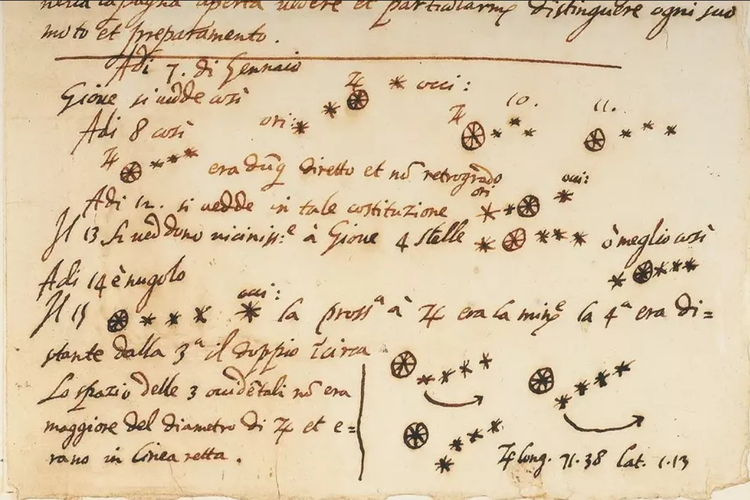 nella campagna aperta vedere et particularmᵉ distinguere ogni suo
moto et preparamento.
Adi 7. di Gennaio
Gione si vedde così ori: ♃ occi:
Adi 8 così ♃ 10. 11.
♃ era dūq diretto et nō retrogrado
Adi 12. si vedde in tale costituzione ori: occi:
Il 13 si veddono viciniss:ᵉ à Giove 4 stelle ò meglio così
Adi 14 è nugolo
Il 15 occi: la prossᵃ à ♃ era la minᵉ la 4ᵃ era di=
stante dalla 3ᵃ il doppio circa
Lo spazio delle 3 occidētali nō era
maggiore del diametro di ♃ et e=
rano in linea retta.
♃ long. 71.38 lat. 1.13